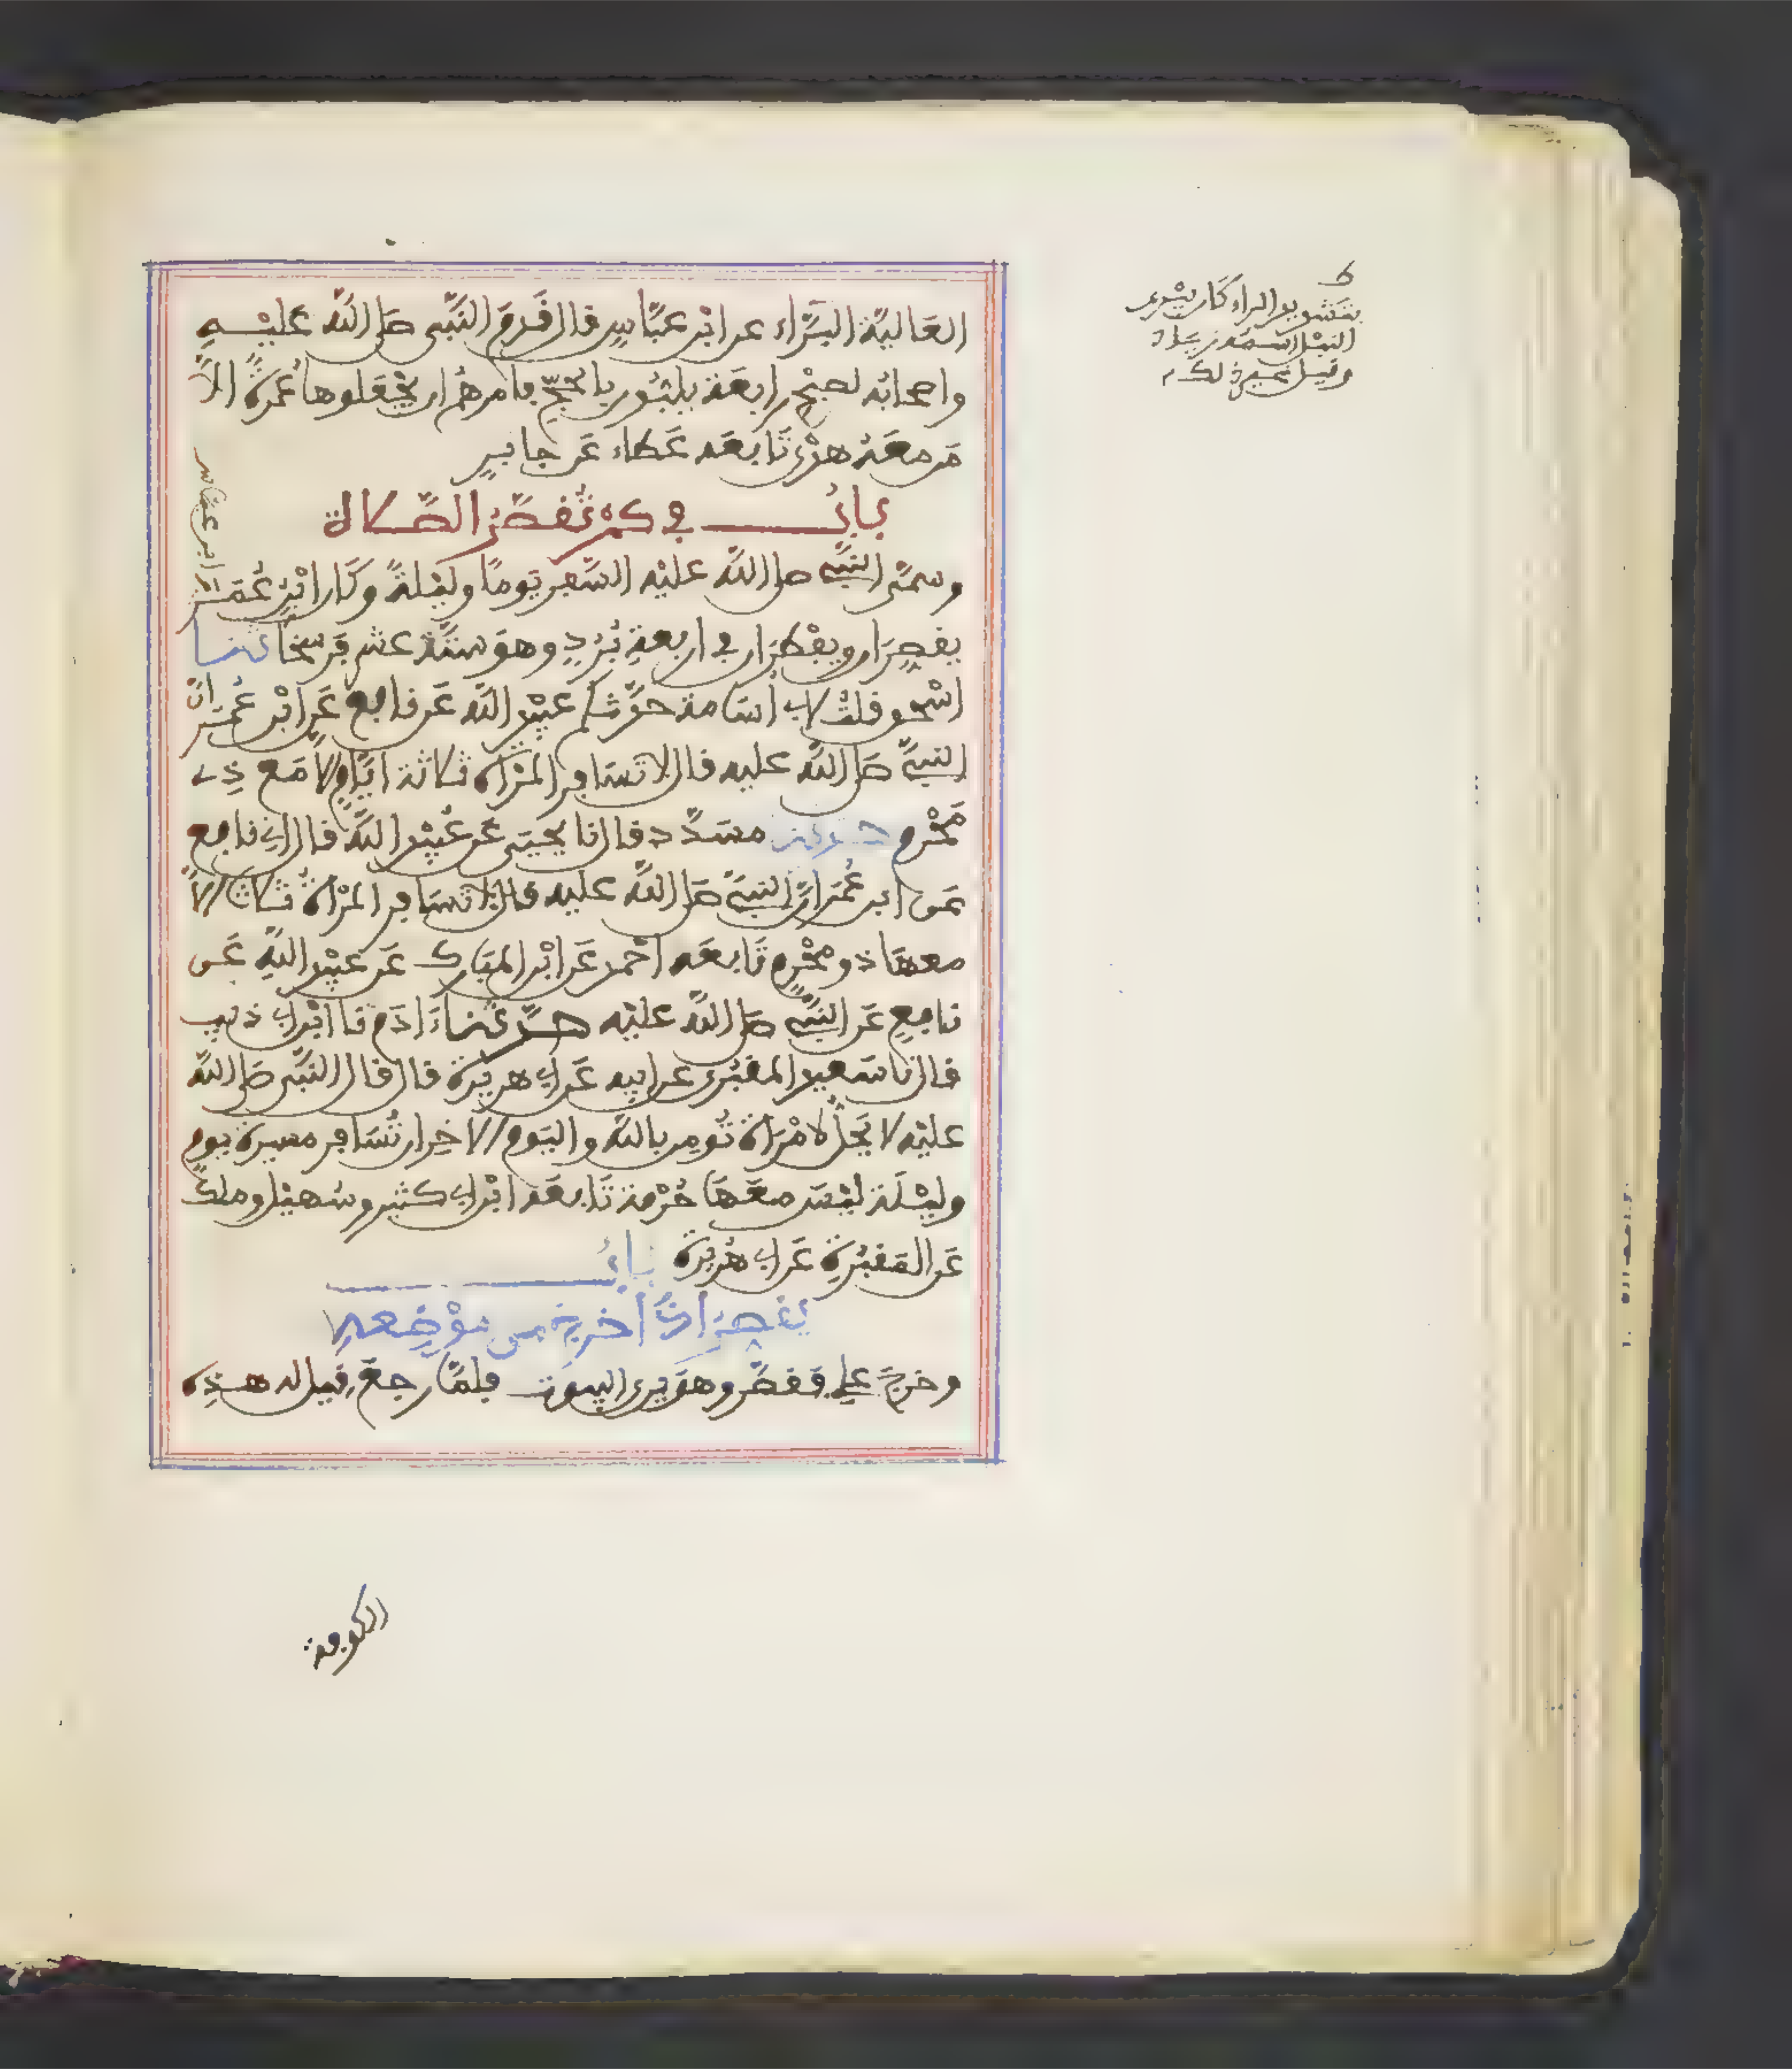 العَالِيَّة البَرَّاء عن ابْنِ عبَّاسٍ قال قَدِمَ النَّبِيُّ صَلى اللَّه عَليْـــهِ
واصحابُه لصبْحِ رابعَة يلبُّون بالحجّ فامرهُم ان يجْعَلوها عُمرةً الاَّ
مَن معَهُ هدْي تَابعَه عَطاء عَن جابـرٍ
بــابُ في كمْ تُقصَرُ الصَّلاة
وسمَّى النبيُّ صلى اللَّه عليْه السَّفر يَومًا وليْلةً وكَان ابْنُ عُمَـرَ
وابن عبّاس
يقصِرَان ويفْطِرَان في اربعةِ بُرُدٍ وهوَ ستَّة عشر فَرسَخًا حدثنـا
اسْحٰق قلتُ لابي اُسَامة حدَّثكم عبيْد اللَّه عَن نافع عَنِ ابْنِ عُمَـرَ انَّ
النبيَّ صَلى اللَّه عليه قال لا تسَافر المرْاة ثلاثة ايَّامٍ الا مَع ذِي
مَحْرم حدثنـا مسَدَّد قال نا يحيَى عَن عُبيْد اللَّه قال اني نافع
عَن ابن عُمَر انَّ النبيَّ صَلى اللَّه عليه قال لا تسَافر المرْاة ثلاثا الاَّ
معهَا ذو محْرمٍ تَابعَه احْمد عَن ابْن المبَارك عَن عبيْد اللَّهِ عَن
نافعٍ عَن النبيِّ صَلى اللَّه عليْه حـدثنـا ءَادَم نا ابْن ابي ذئب
قال نا سَعيد المقبُري عن ابيه عَن ابي هريرة قال قال النَّبيُّ صَلى اللَّه
عليْه لا يَحلُّ لامْرَاة تُومِن بالله واليَوم الاخِر ان تُسَافر مسيرة يومٍ
وليْـلَة ليْسَ معَهَا حُرْمة تَابعَه ابْن ابي كثير وسُهيْل وملكٌ
عَن المَقبُرِي عَن ابي هُريرة بــابُ
يَقصِرُ اذا خرج من موْضعه
وخرجَ علي فقصَر وهوَ يرى البيوت فلمَّا رجعَ قيل له هـذه
بتشديد الراء كان يبْري
النبْل اسمه زياد
وقيل غير ذلك
الكوفة